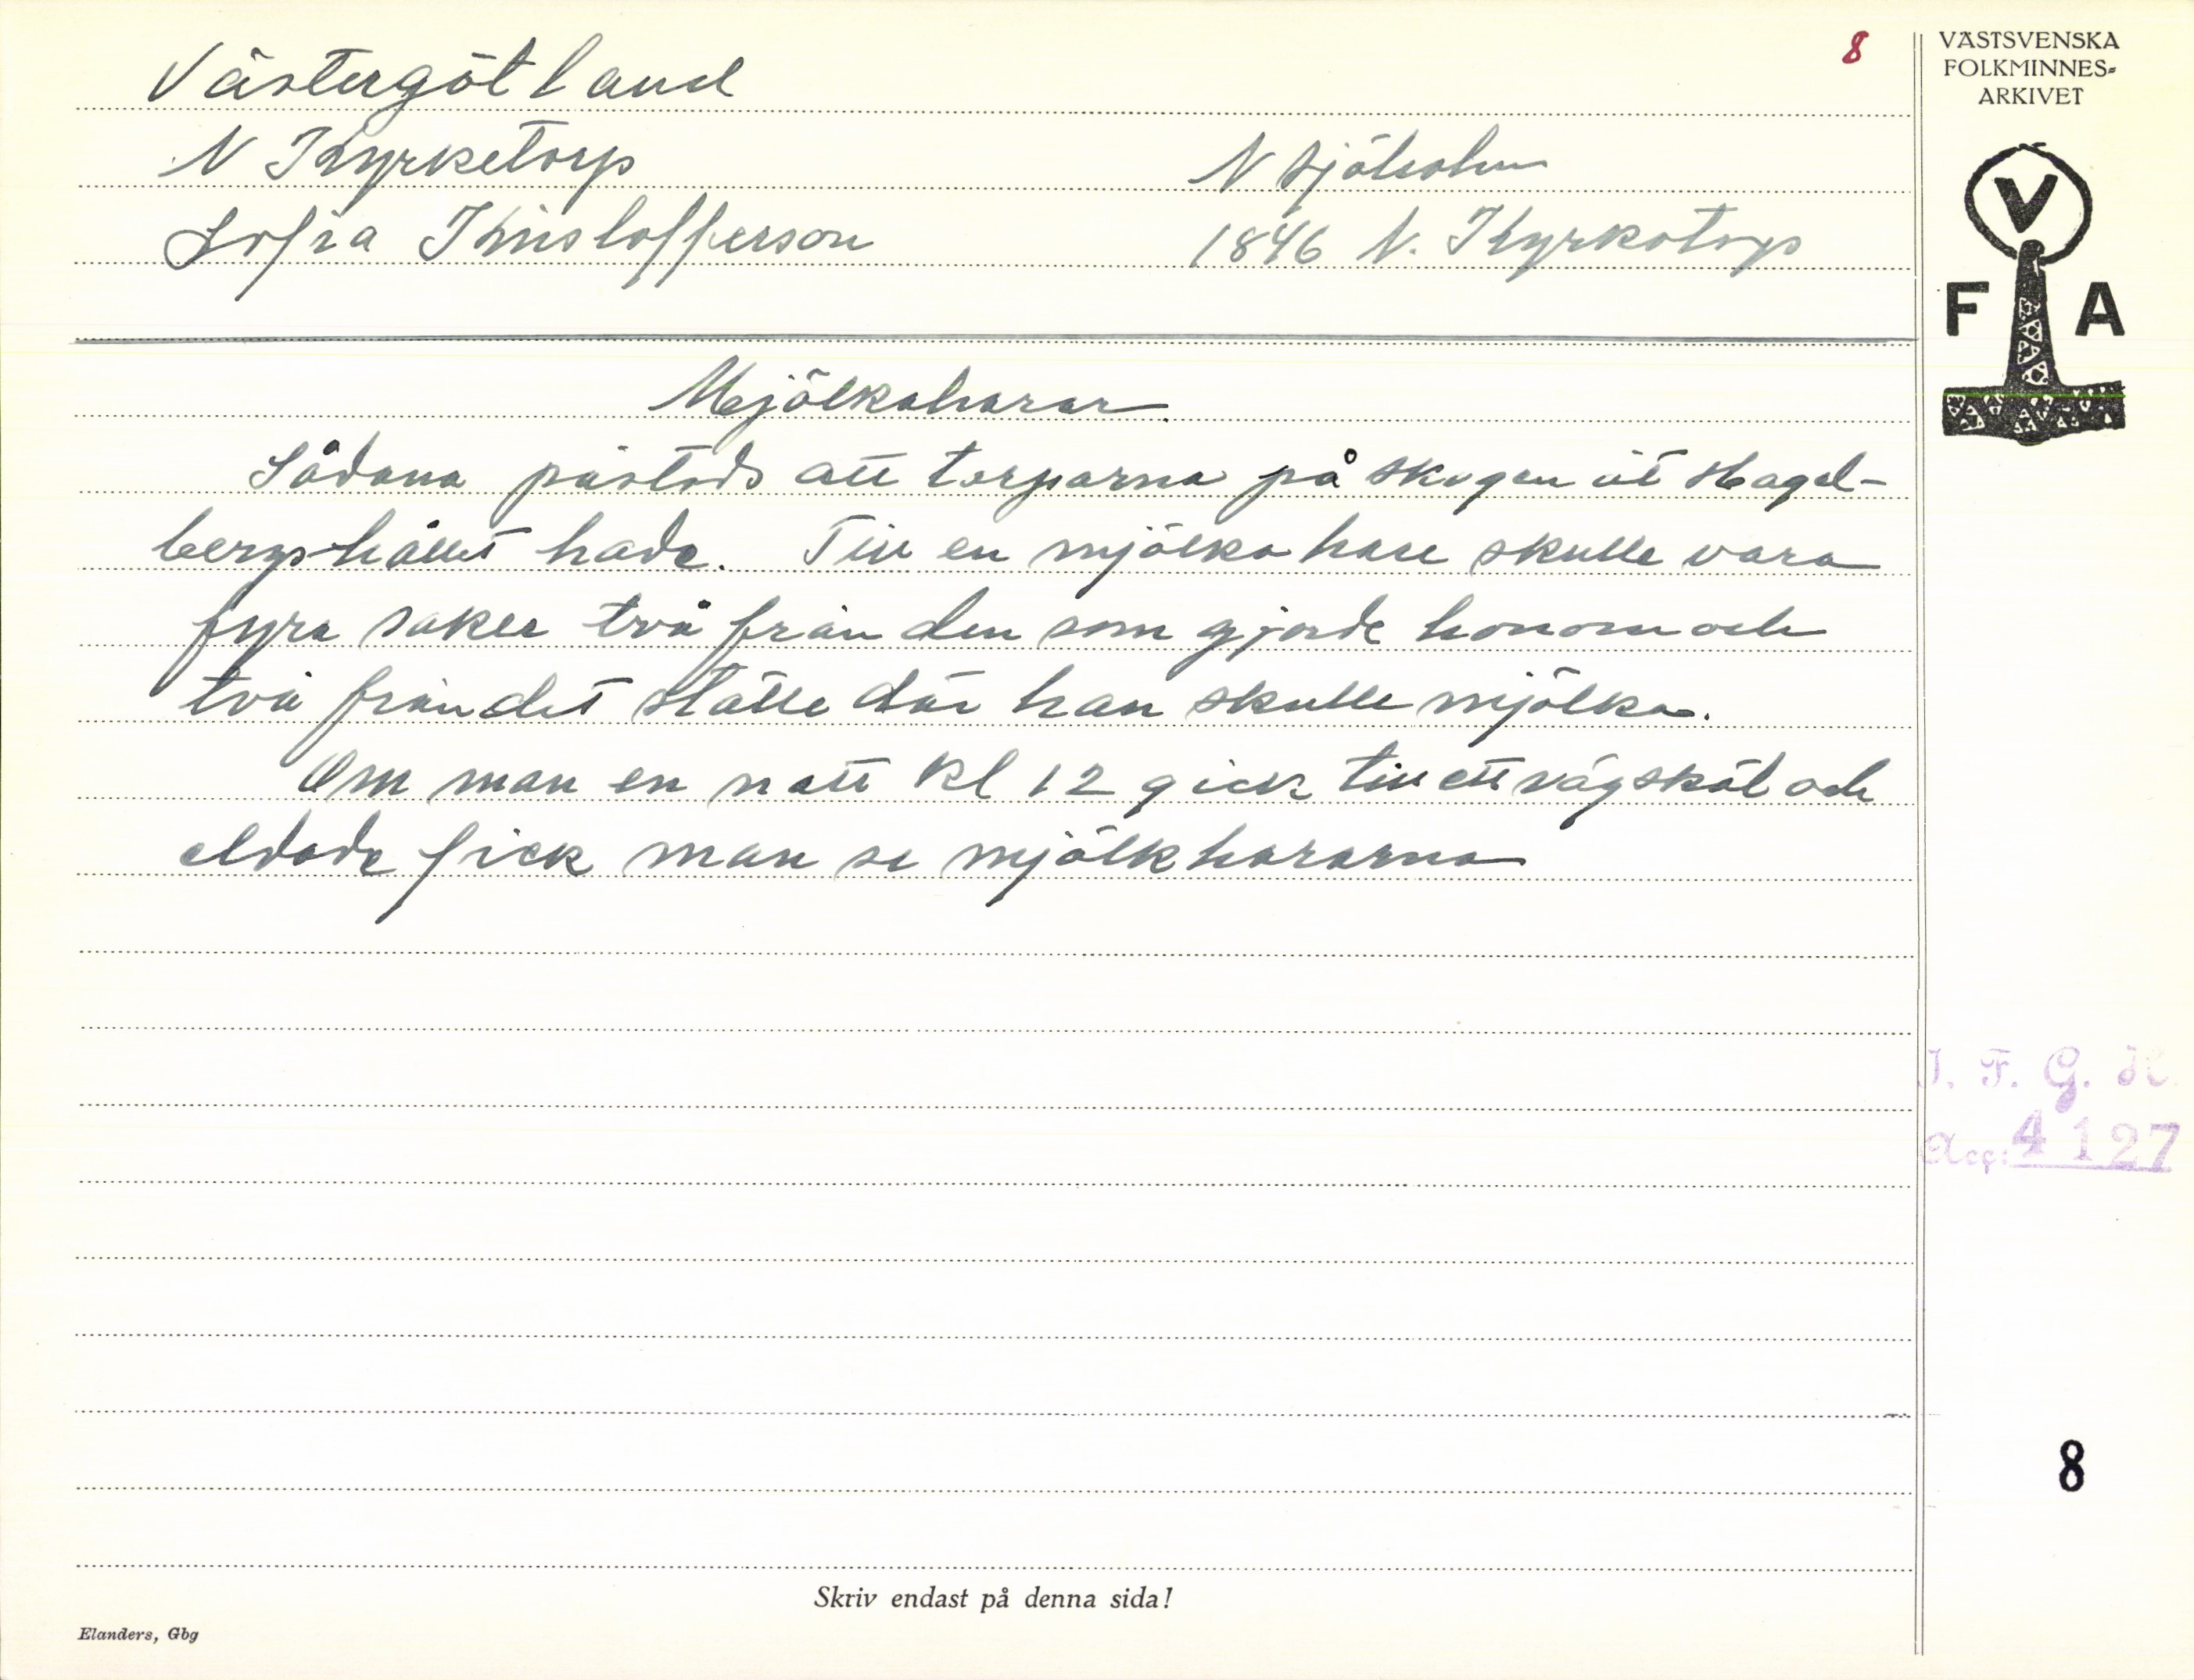 Västergötland
8
N Kyrketorp
N Sjöholm
Sofia Kristofferson
1846 N. Kyrketorp
Mjölkaharar.
Sådana påstods att torparna på skogen åt Hagel-
bergshållet hade. Till en mjölkahare skulle vara
fyra saker två från den som gjorde honom och
två från det ställe där han skulle mjölka.
Om man en natt kl 12 gick till ett vägskäl och
eldade fick man se mjölkhararna
VÄSTSVENSKA
FOLKMINNES-
ARKIVET
V
F A
I. F. G. H.
Acc: 4127
8
Skriv endast på denna sida!
Elanders, Gbg